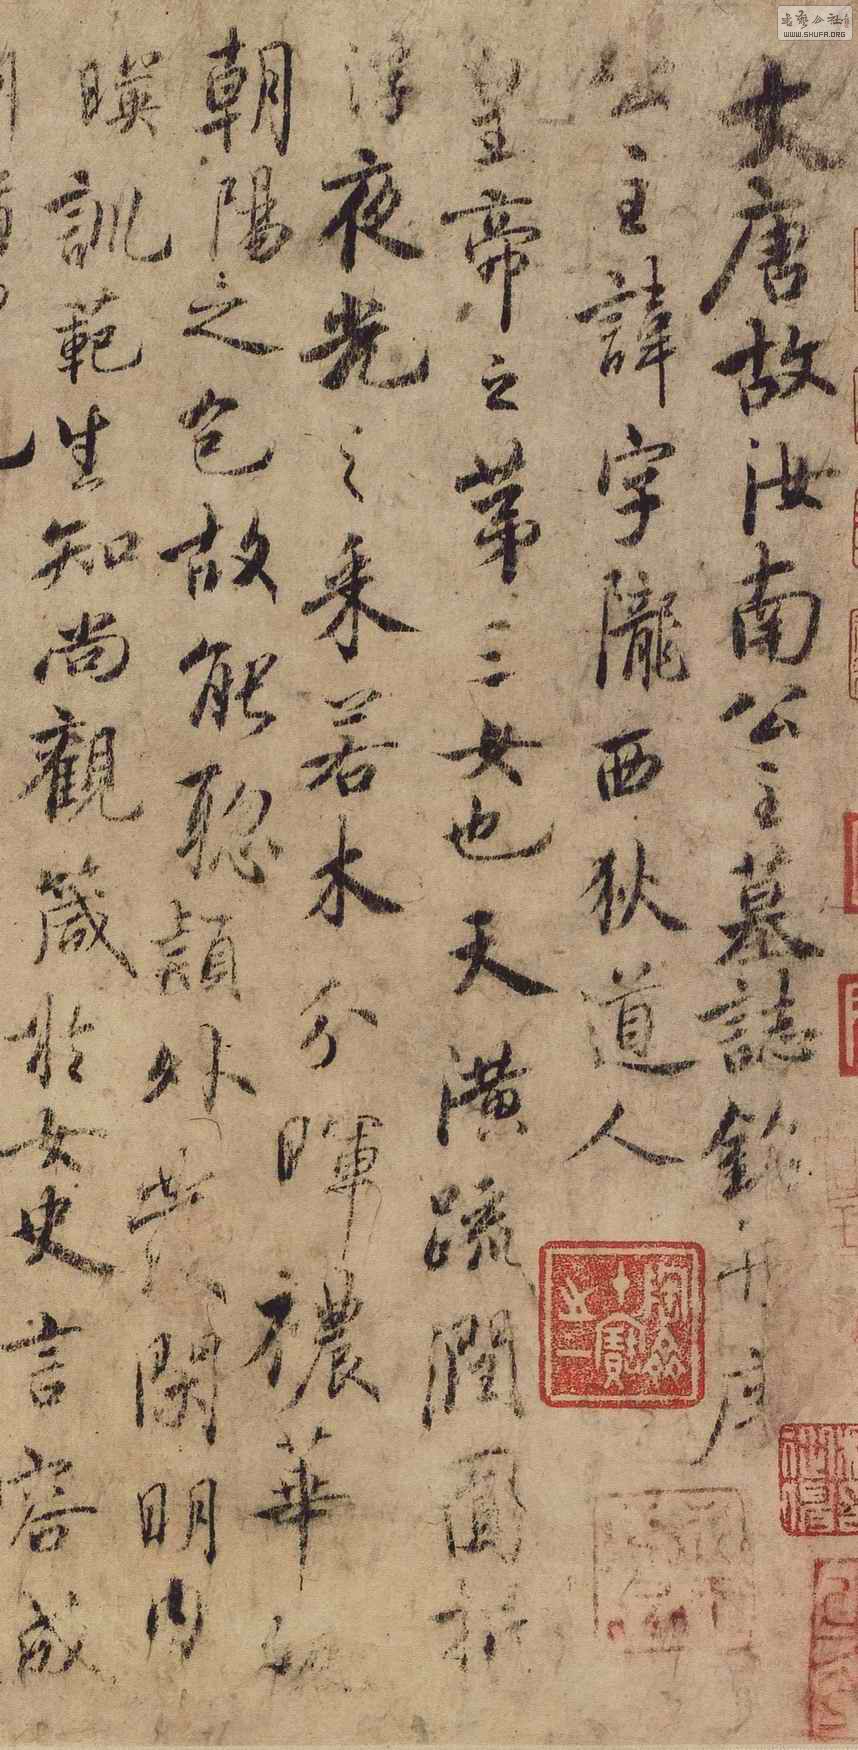 大唐故汝南公主墓誌銘并序
公主諱字隴西狄道人
皇帝之第三女也天潢疏潤圓折
浮夜光之采若木分暉穠華
朝陽之色故能聰頴外發閑明内
暎訓範生知尚觀箴於女史言容成
書法公社
WWW.SHUFA.ORG